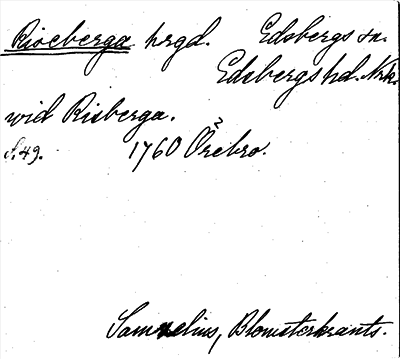 Riseberga hrgd. Edsbergs sn.
Edsbergs hd. Nrk.
wid Risberga.
s. 49. 1760 Örebro.
2
Samzelius, Blomsterkrants.